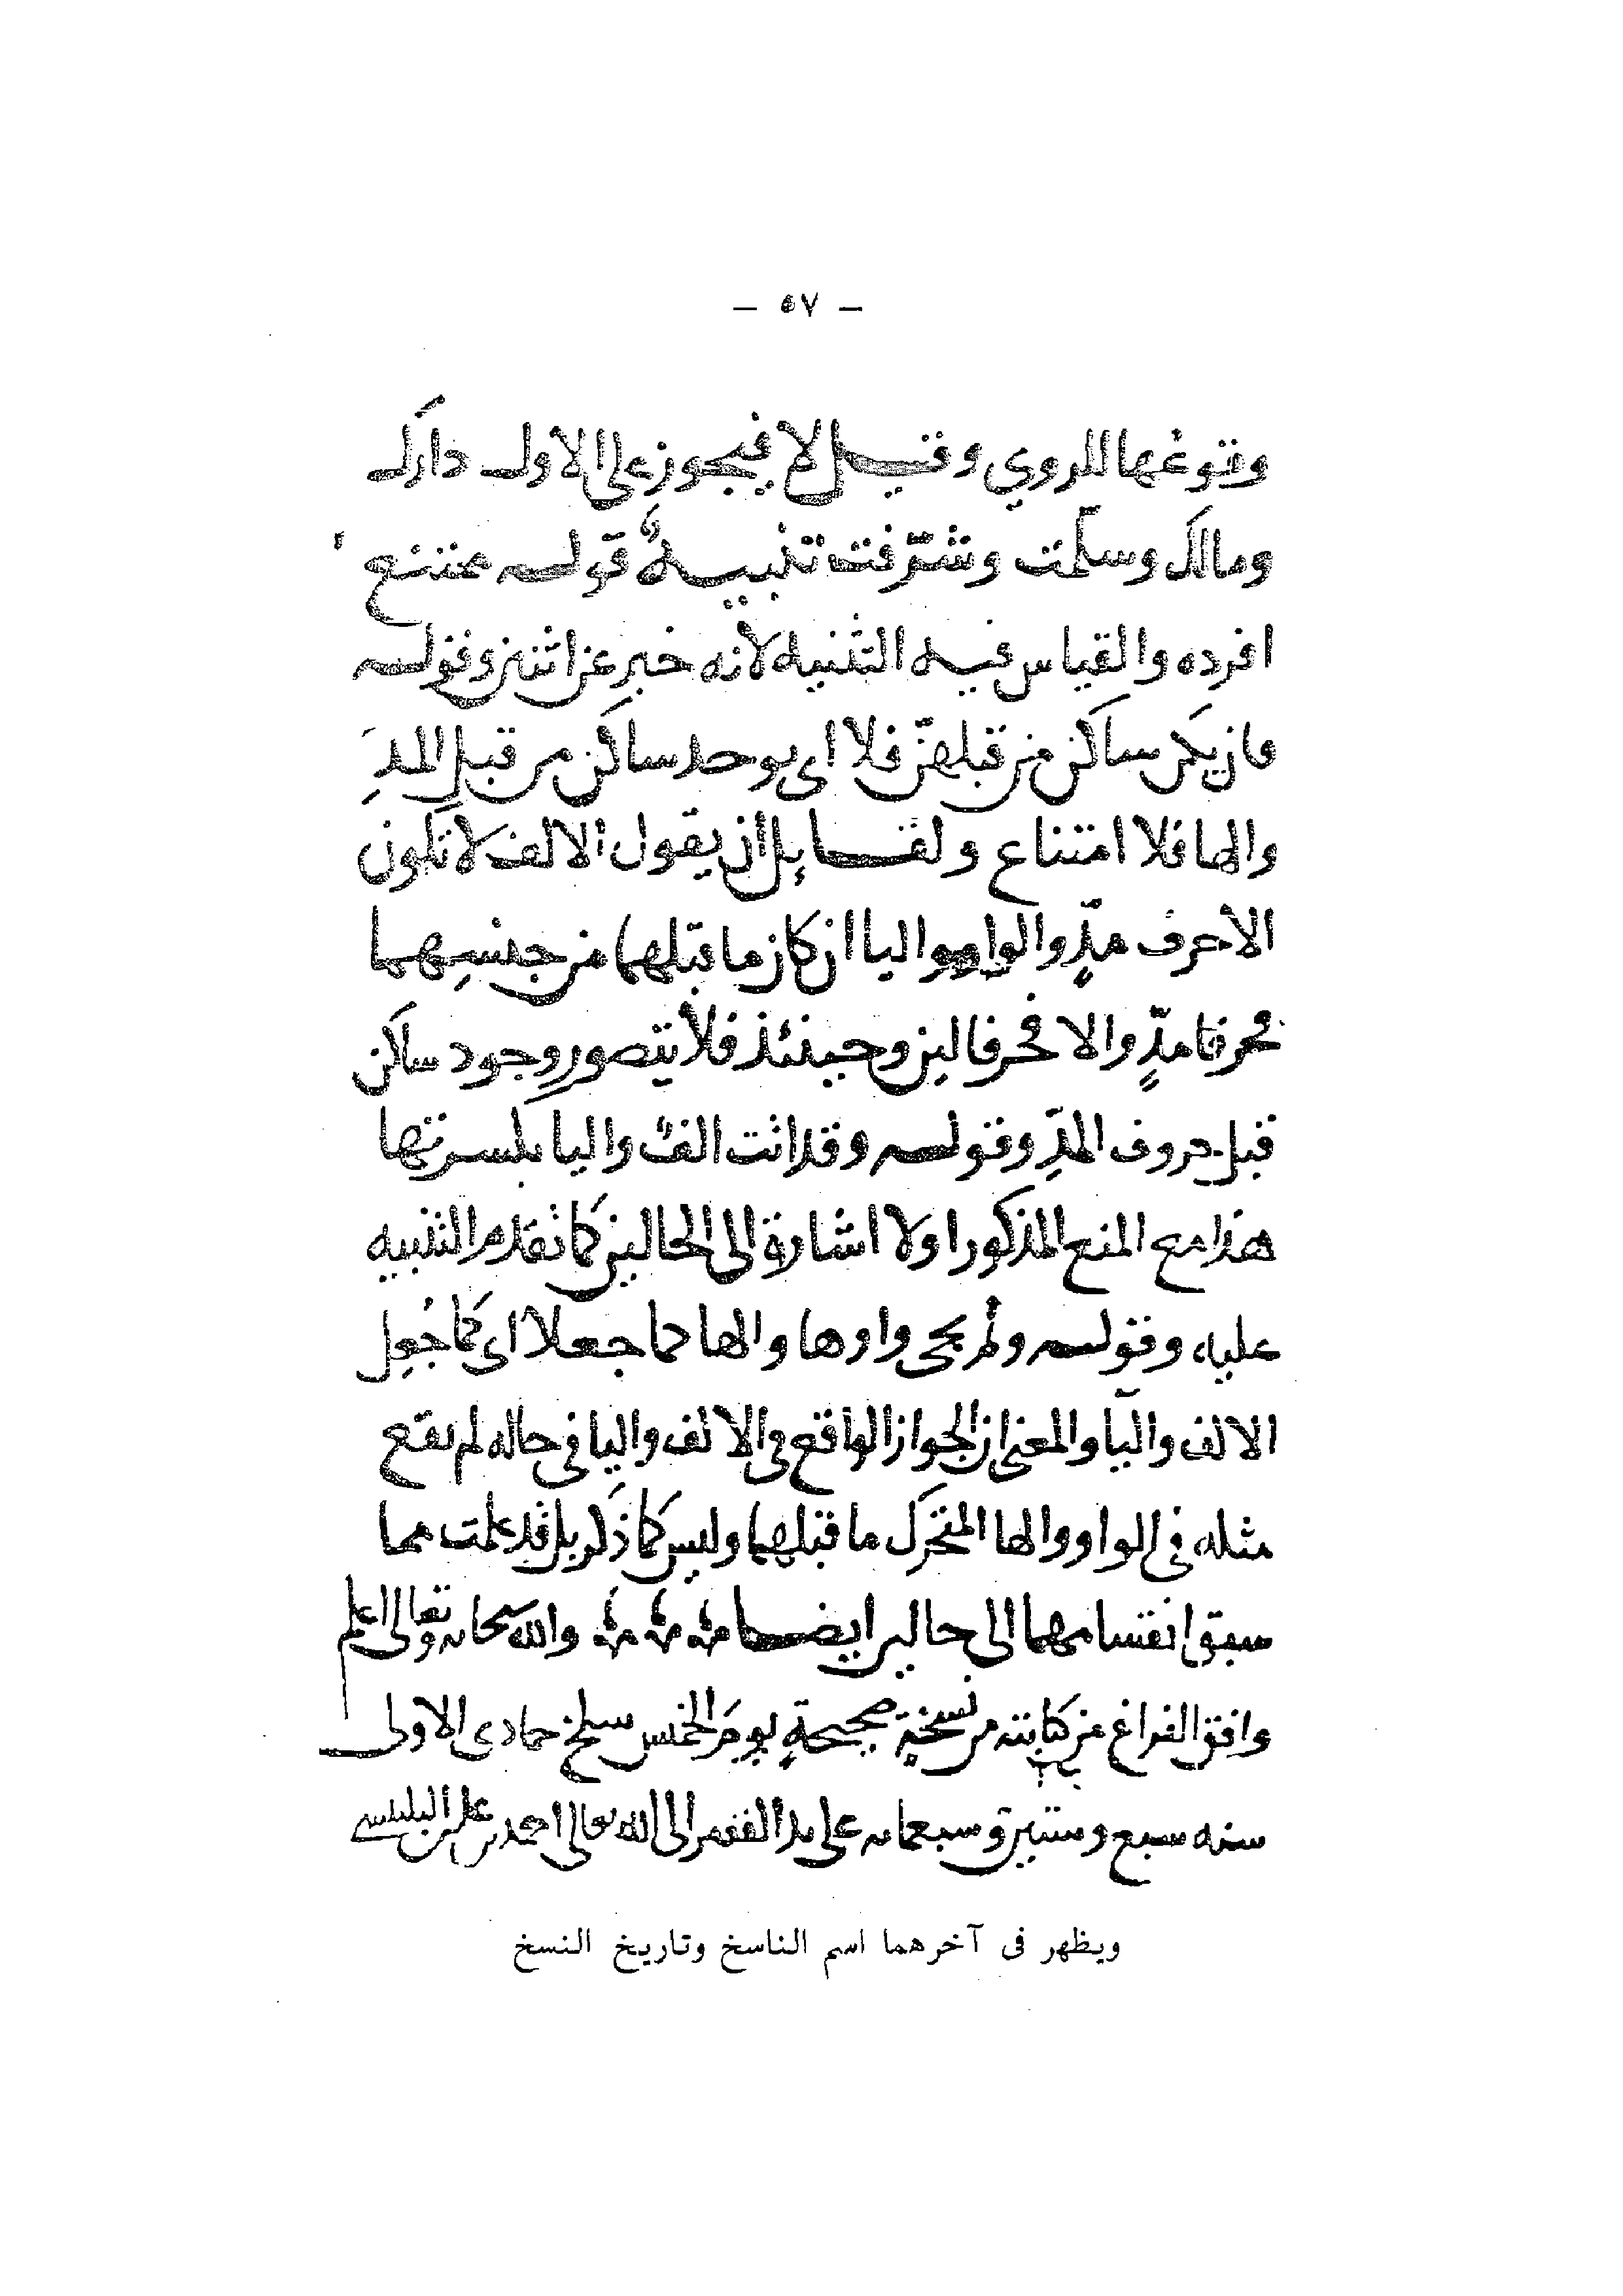 – ٥٧ –
وقوعها للروي وقيل لا فيجوز على الاول دارك
ومالك وسلمت وشرفت تنبيه قوله ممتنع
افرده والقياس فيه التثنيه لانه خبر عن اثنين وقوله
فان يكن ساكن من قبلهن فلا اى يوجد ساكن من قبل المد
والها فلا امتناع ولقايل ان يقول الالف لا تكون
الا حرف مدٍّ والواو واليا ان كان ما قبلهما من جنسهما
فحرفا مدٍّ والا فحرفا لين وحينئذ فلا يتصور وجود ساكن
قبل حروف المد وقوله وقد اتت الف واليا
هذا مع المنع المذكور اولا اشارة الى الحالين كما تقدم التنبيه
عليه وقوله ولم يجى واوها والها كما جعلا اى كما جُعِل
الالف واليا والمعنى ان الجواز الواقع في الالف واليا في حاله لم يقع
مثله في الواو والها المتحرك ما قبلهما وليس كما ذكر بل قد علمت مما
سبق انقسامهما الى حالين ايضا والله سبحانه وتعالى اعلم
وافق الفراغ من كتابته من نسخة صحيحةٍ يوم الخميس سلخ جمادى الاولى
سنه سبع وستين وسبعمايه على يد الفقير الى الله تعالى احمد بن على بن البلبيسي
ويظهر فى آخرهما اسم الناسخ وتاريخ النسخ